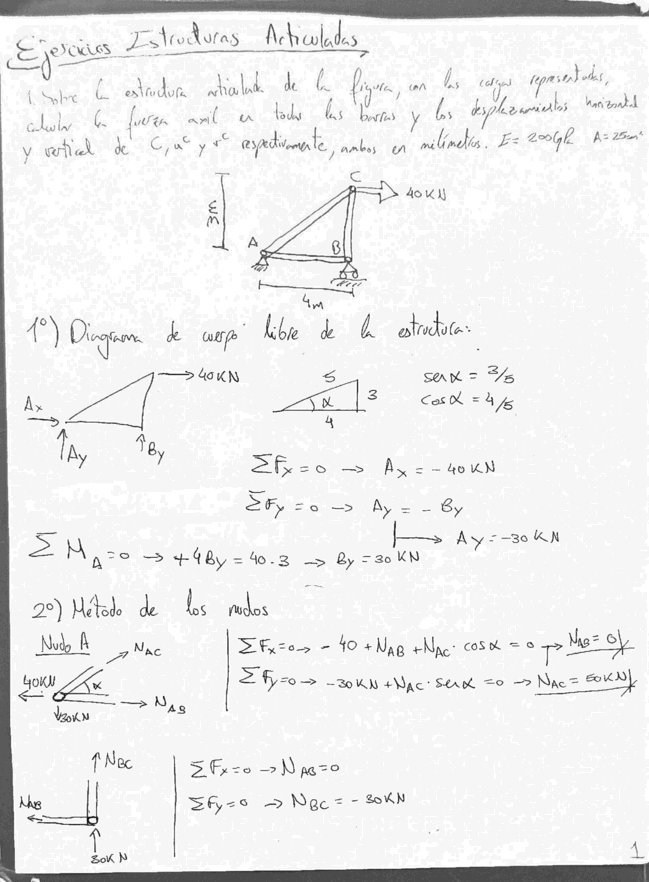 Ejercicios Estructuras Articuladas
1. Sobre la estructura articulada de la figura, con las cargas representadas,
calcular la fuerza axil en todas las barras y los desplazamientos horizontal
y vertical de C, uᶜ y vᶜ respectivamente, ambos en milímetros. E = 200GPa A = 25cm²
C
40KN
3m
A
B
4m
1º) Diagrama de cuerpo libre de la estructura:
40KN
5
3
α
4
senα = 3/5
cosα = 4/5
Ax
Ay
By
ΣFx = 0 → Ax = - 40KN
ΣFy = 0 → Ay = - By
→ Ay = -30KN
ΣM_A = 0 → +4By = 40·3 → By = 30KN
2º) Método de los nudos
Nudo A
N_AC
40KN
α
30KN
N_AB
ΣFx=0 → - 40 + N_AB + N_AC · cosα = 0 → N_AB = 0
ΣFy=0 → -30KN + N_AC · senα = 0 → N_AC = 50KN
N_BC
N_AB
30KN
ΣFx=0 → N_AB=0
ΣFy=0 → N_BC = - 30KN
1